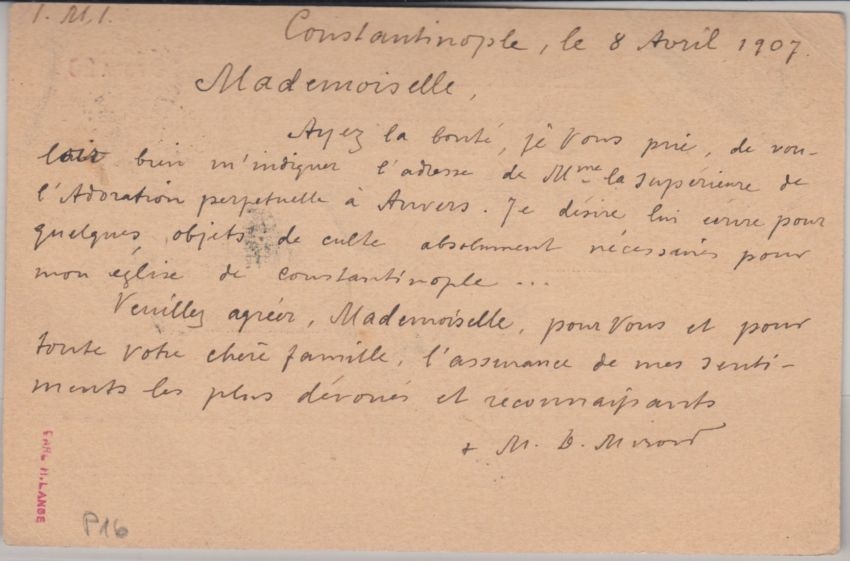 I. M. I.
Constantinople, le 8 Avril 1907.
Mademoiselle,
Ayez la bonté, je vous prie, de vou-
loir bien m'indiquer l'adresse de Mme la Supérieure de
l'Adoration perpetuelle à Anvers. Je désire lui écrire pour
quelques objets de culte absolument nécessaires pour
mon église de Constantinople ...
Veuillez agréer, Mademoiselle, pour vous et pour
toute votre chère famille, l'assurance de mes senti-
ments les plus dévoués et reconnaissants
+ M. D.
EARL H. LANGE
P16